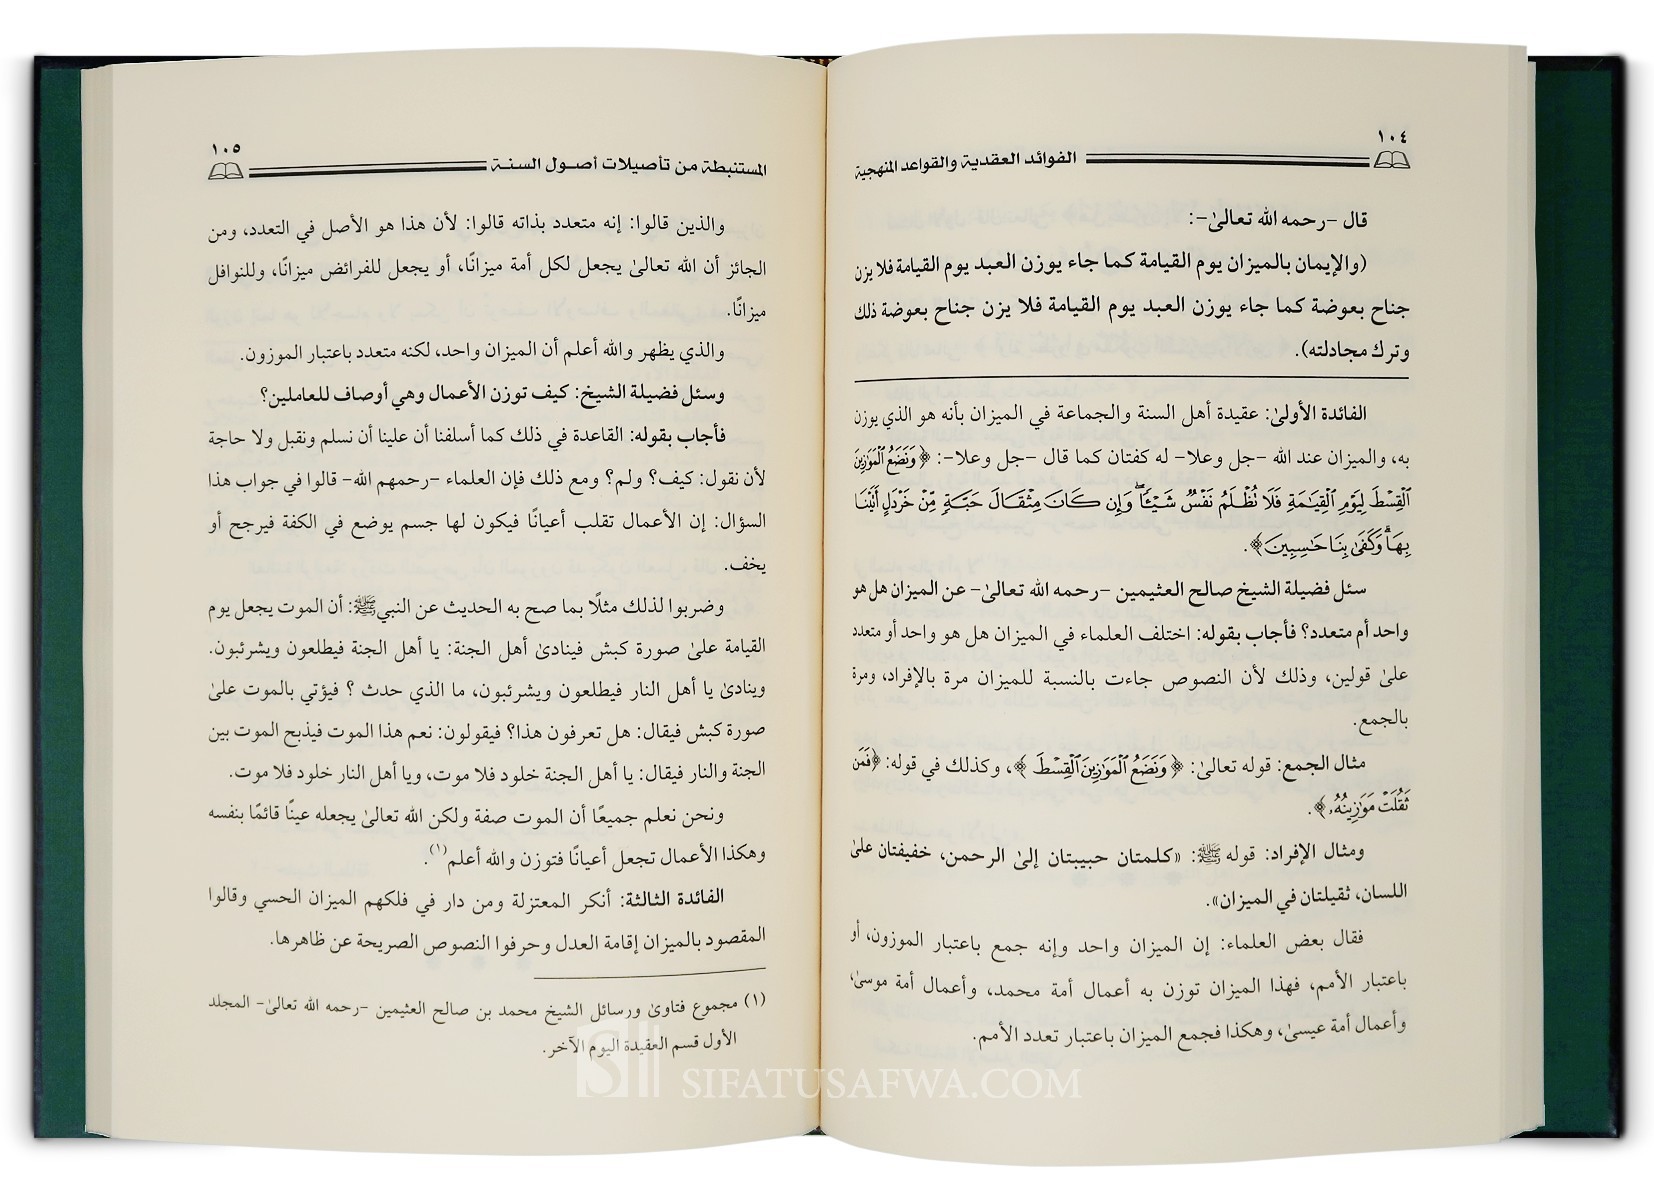 ١٠٤
الفوائد العقدية والقواعد المنهجية
قال -رحمه الله تعالىٰ-:
(والإيمان بالميزان يوم القيامة كما جاء يوزن العبد يوم القيامة فلا يزن
جناح بعوضة كما جاء يوزن العبد يوم القيامة فلا يزن جناح بعوضة ذلك
وترك مجادلته).
الفائدة الأولىٰ: عقيدة أهل السنة والجماعة في الميزان بأنه هو الذي يوزن
به، والميزان عند الله -جل وعلا- له كفتان كما قال -جل وعلا-: ﴿وَنَضَعُ ٱلْمَوَٰزِينَ
ٱلْقِسْطَ لِيَوْمِ ٱلْقِيَٰمَةِ فَلَا تُظْلَمُ نَفْسٌ شَيْـًٔا ۖ وَإِن كَانَ مِثْقَالَ حَبَّةٍ مِّنْ خَرْدَلٍ أَتَيْنَا
بِهَا ۗ وَكَفَىٰ بِنَا حَٰسِبِينَ﴾.
سئل فضيلة الشيخ صالح العثيمين -رحمه الله تعالىٰ- عن الميزان هل هو
واحد أم متعدد؟ فأجاب بقوله: اختلف العلماء في الميزان هل هو واحد أو متعدد
علىٰ قولين، وذلك لأن النصوص جاءت بالنسبة للميزان مرة بالإفراد، ومرة
بالجمع.
مثال الجمع: قوله تعالىٰ: ﴿وَنَضَعُ ٱلْمَوَٰزِينَ ٱلْقِسْطَ﴾، وكذلك في قوله: ﴿فَمَن
ثَقُلَتْ مَوَٰزِينُهُۥ﴾.
ومثال الإفراد: قوله ﷺ: «كلمتان حبيبتان إلىٰ الرحمن، خفيفتان علىٰ
اللسان، ثقيلتان في الميزان».
فقال بعض العلماء: إن الميزان واحد وإنه جمع باعتبار الموزون، أو
باعتبار الأمم، فهذا الميزان توزن به أعمال أمة محمد، وأعمال أمة موسىٰ،
وأعمال أمة عيسىٰ، وهكذا فجمع الميزان باعتبار تعدد الأمم.
١٠٥
المستنبطة من تأصيلات أصول السنة
والذين قالوا: إنه متعدد بذاته قالوا: لأن هذا هو الأصل في التعدد، ومن
الجائز أن الله تعالىٰ يجعل لكل أمة ميزانًا، أو يجعل للفرائض ميزانًا، وللنوافل
ميزانًا.
والذي يظهر والله أعلم أن الميزان واحد، لكنه متعدد باعتبار الموزون.
وسئل فضيلة الشيخ: كيف توزن الأعمال وهي أوصاف للعاملين؟
فأجاب بقوله: القاعدة في ذلك كما أسلفنا أن علينا أن نسلم ونقبل ولا حاجة
لأن نقول: كيف؟ ولم؟ ومع ذلك فإن العلماء -رحمهم الله- قالوا في جواب هذا
السؤال: إن الأعمال تقلب أعيانًا فيكون لها جسم يوضع في الكفة فيرجح أو
يخف.
وضربوا لذلك مثلًا بما صح به الحديث عن النبي ﷺ: أن الموت يجعل يوم
القيامة علىٰ صورة كبش فينادىٰ أهل الجنة: يا أهل الجنة فيطلعون ويشرئبون.
وينادىٰ يا أهل النار فيطلعون ويشرئبون، ما الذي حدث ؟ فيؤتي بالموت علىٰ
صورة كبش فيقال: هل تعرفون هذا؟ فيقولون: نعم هذا الموت فيذبح الموت بين
الجنة والنار فيقال: يا أهل الجنة خلود فلا موت، ويا أهل النار خلود فلا موت.
ونحن نعلم جميعًا أن الموت صفة ولكن الله تعالىٰ يجعله عينًا قائمًا بنفسه
وهكذا الأعمال تجعل أعيانًا فتوزن والله أعلم(١).
الفائدة الثالثة: أنكر المعتزلة ومن دار في فلكهم الميزان الحسي وقالوا
المقصود بالميزان إقامة العدل وحرفوا النصوص الصريحة عن ظاهرها.
(١) مجموع فتاوىٰ ورسائل الشيخ محمد بن صالح العثيمين -رحمه الله تعالىٰ- المجلد
الأول قسم العقيدة اليوم الآخر.
SIFATUSAFWA.COM